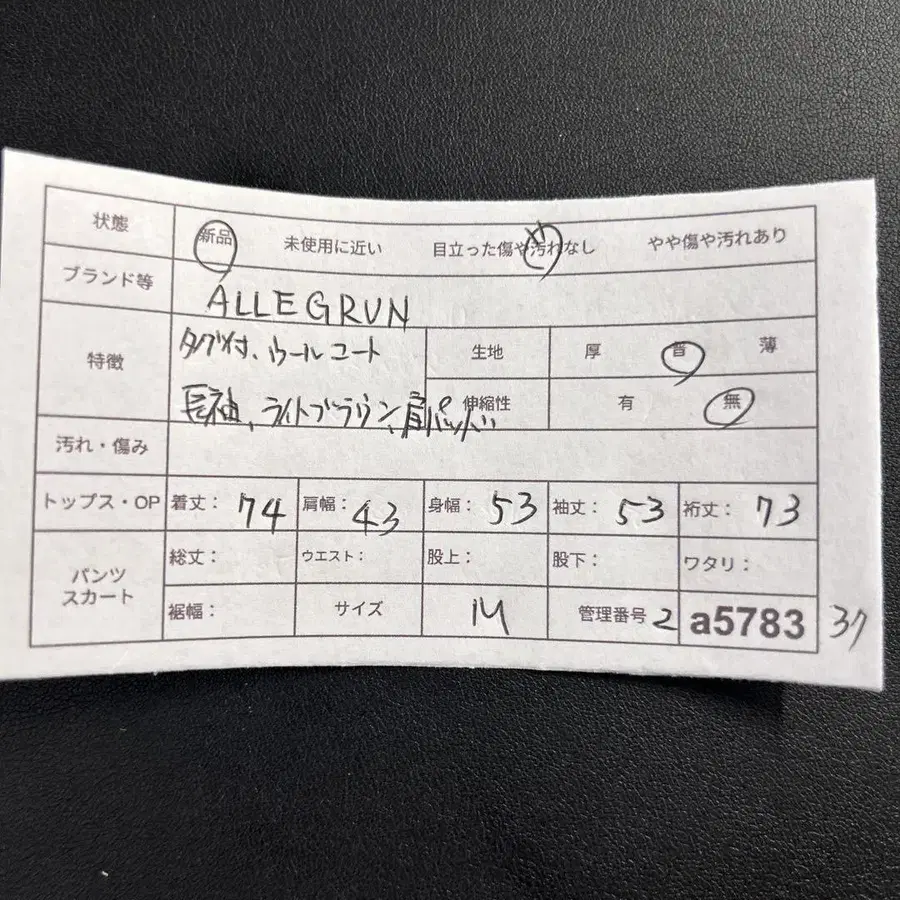 状態 新品 未使用に近い 目立った傷や汚れなし やや傷や汚れあり
ブランド等 ALLEGRUN
特徴 タグ付、ウールコート 生地 厚 普 薄
長袖、ライトブラウン、肩パット 伸縮性 有 無
汚れ・傷み
トップス・OP 着丈: 74 肩幅: 43 身幅: 53 袖丈: 53 裄丈: 73
パンツ スカート 総丈: ウエスト: 股上: 股下: ワタリ:
裾幅: サイズ M 管理番号 2 a5783 37